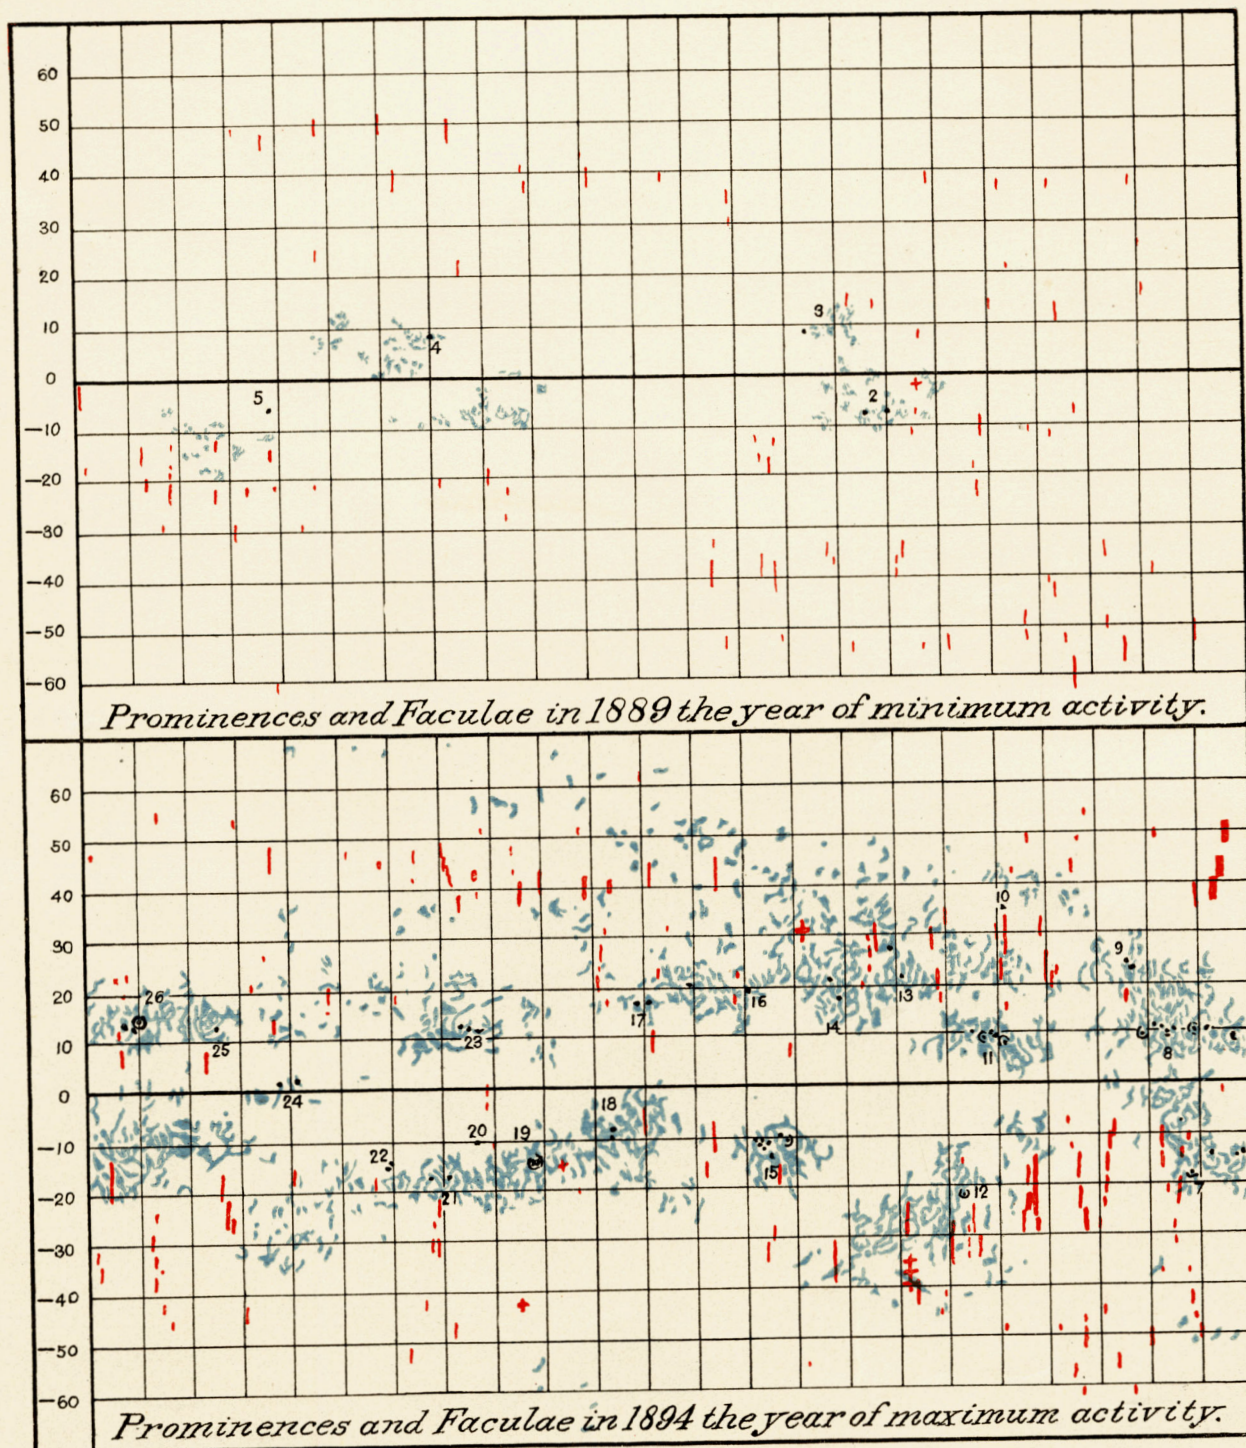 60
50
40
30
20
10
0
—10
—20
—30
—40
—50
—60
3
4
5
2
Prominences and Faculae in 1889 the year of minimum activity.
60
50
40
30
20
10
0
—10
—20
—30
—40
—50
—60
10
9
26
13
16
17
14
25
23
11
8
24
18
20
19
9
22
15
21
12
7
Prominences and Faculae in 1894 the year of maximum activity.